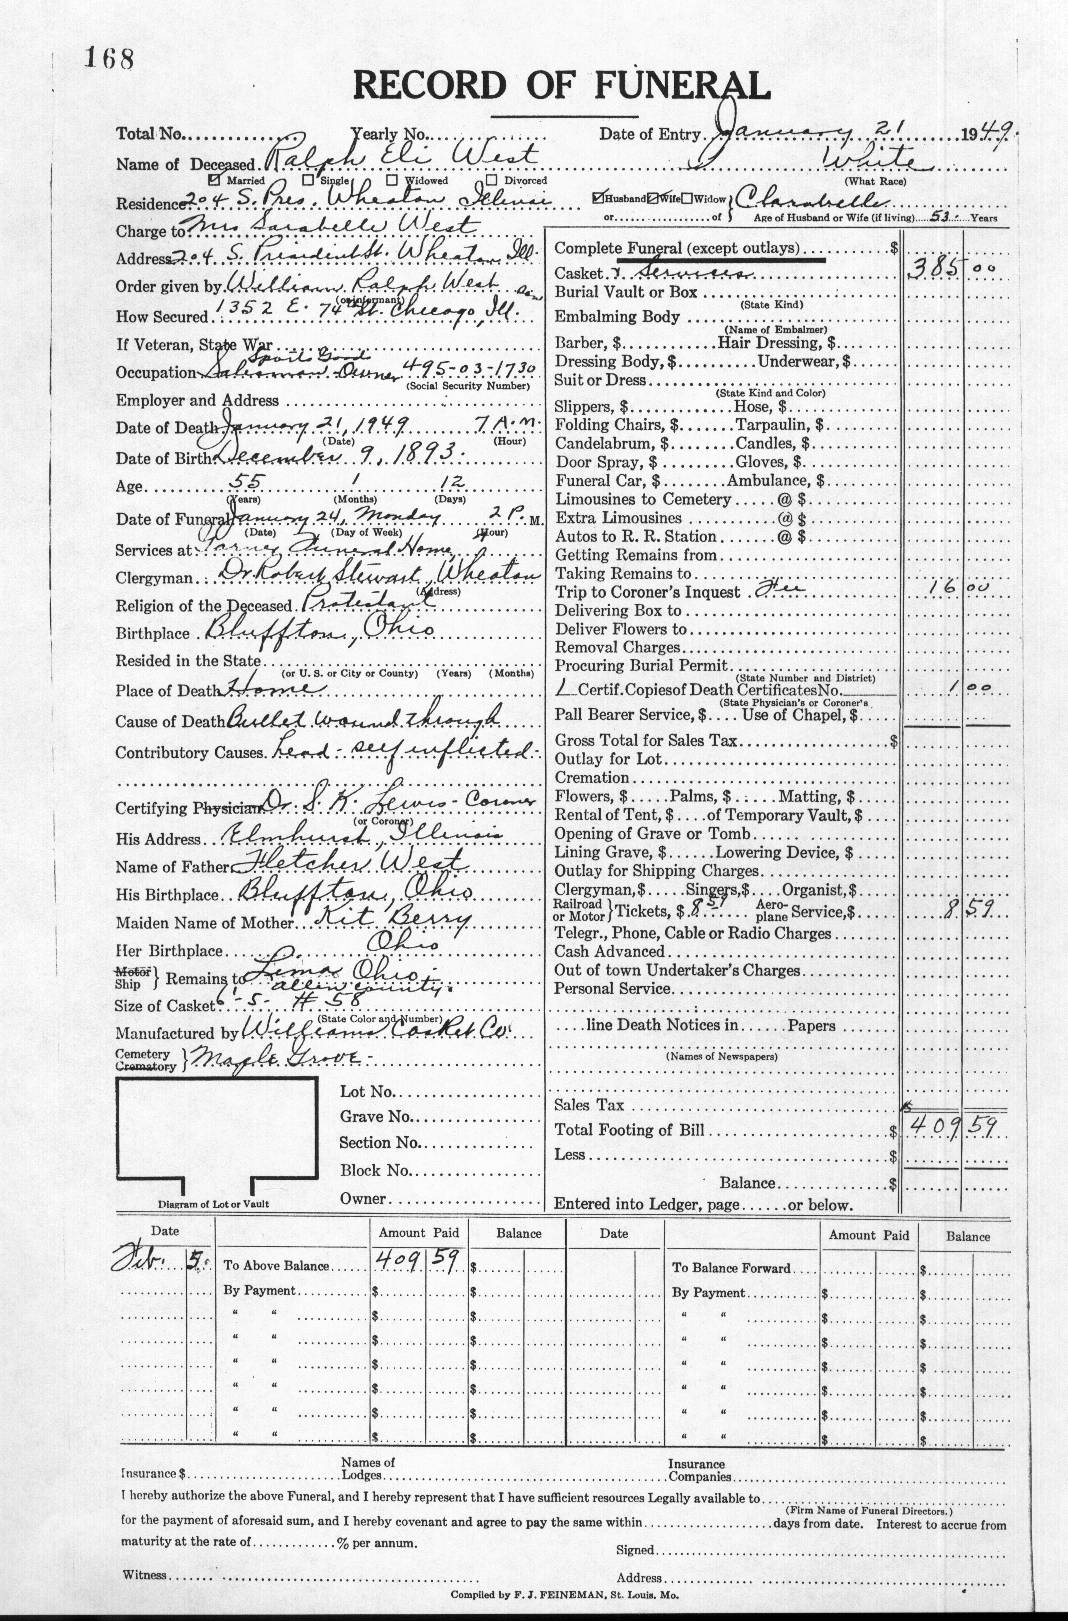 168
RECORD OF FUNERAL
Total No. Yearly No. Date of Entry January 21 1949.
Name of Deceased. Ralph Eli West White
Married Single Widowed Divorced (What Race)
Residence 204 S. Pres. Wheaton Illinois Husband Wife Widow } Clarabelle
or of Age of Husband or Wife (if living) 53 Years
Charge to Mrs Sarabelle West
Address 204 S. President St. Wheaton, Ill.
Order given by William Ralph West Son
(or informant)
How Secured 1352 E. 74th St. Chicago, Ill.
If Veteran, State War
Sport Good
Occupation Salesman Owner 495-03-1730
(Social Security Number)
Employer and Address
Date of Death January 21, 1949 7 A.M.
(Date) (Hour)
Date of Birth December 9, 1893.
Age 55 1 12
(Years) (Months) (Days)
Date of Funeral January 24, Monday 2 P.M.
(Date) (Day of Week) (Hour)
Services at Funeral Home
Clergyman Dr Robert Stewart, Wheaton
(Address)
Religion of the Deceased Protestant
Birthplace Bluffton, Ohio
Resided in the State
(or U. S. or City or County) (Years) (Months)
Place of Death Home
Cause of Death Bullet wound through
Contributory Causes. head - self inflicted -
Certifying Physician Dr. S. K. Lewis - Coroner
(or Coroner)
His Address Elmhurst, Illinois
Name of Father Fletcher West
His Birthplace Bluffton, Ohio
Maiden Name of Mother Kit Berry
Her Birthplace Ohio
Motor
Ship } Remains to Lima Ohio -
Allen County.
Size of Casket 6'-5- # 58
(State Color and Number)
Manufactured by Williams Casket Co.
Cemetery
Crematory } Maple Grove -
Lot No.
Grave No.
Section No.
Block No.
Owner
Diagram of Lot or Vault
Complete Funeral (except outlays) $
Casket & Services 385 00
Burial Vault or Box
(State Kind)
Embalming Body
(Name of Embalmer)
Barber, $ Hair Dressing, $
Dressing Body, $ Underwear, $
Suit or Dress
(State Kind and Color)
Slippers, $ Hose, $
Folding Chairs, $ Tarpaulin, $
Candelabrum, $ Candles, $
Door Spray, $ Gloves, $
Funeral Car, $ Ambulance, $
Limousines to Cemetery @ $
Extra Limousines @ $
Autos to R. R. Station @ $
Getting Remains from
Taking Remains to
Trip to Coroner's Inquest Fee 16 00
Delivering Box to
Deliver Flowers to
Removal Charges
Procuring Burial Permit
(State Number and District)
1 Certif. Copies of Death Certificates No. 1 00
(State Physician's or Coroner's
Pall Bearer Service, $ Use of Chapel, $
Gross Total for Sales Tax $
Outlay for Lot
Cremation
Flowers, $ Palms, $ Matting, $
Rental of Tent, $ of Temporary Vault, $
Opening of Grave or Tomb
Lining Grave, $ Lowering Device, $
Outlay for Shipping Charges
Clergyman, $ Singers, $ Organist, $
Railroad
or Motor } Tickets, $ 8 59 Aero-
plane Service, $ 8 59
Telegr., Phone, Cable or Radio Charges
Cash Advanced
Out of town Undertaker's Charges
Personal Service
line Death Notices in Papers
(Names of Newspapers)
Sales Tax
Total Footing of Bill $ 409 59
Less $
Balance $
Entered into Ledger, page or below.
Date Amount Paid Balance Date Amount Paid Balance
Feb. 5. To Above Balance 409 59 $ To Balance Forward $
By Payment $ $ By Payment $ $
" " $ $ " " $ $
" " $ $ " " $ $
" " $ $ " " $ $
" " $ $ " " $ $
" " $ $ " " $ $
" " $ $ " " $ $
Insurance $ Names of
Lodges Insurance
Companies
I hereby authorize the above Funeral, and I hereby represent that I have sufficient resources Legally available to
(Firm Name of Funeral Directors.)
for the payment of aforesaid sum, and I hereby covenant and agree to pay the same within days from date. Interest to accrue from
maturity at the rate of % per annum.
Signed
Witness Address
Compiled by F. J. FEINEMAN, St. Louis. Mo.